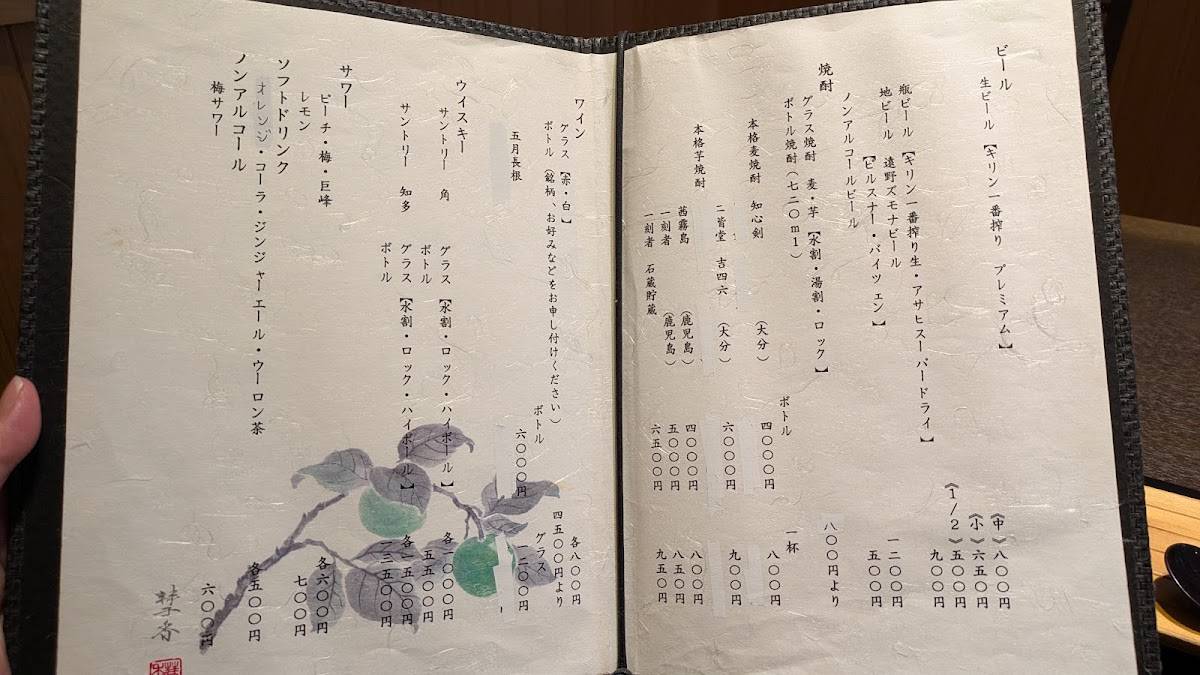 ビール
生ビール 【キリン一番搾り プレミアム】
《中》八〇〇円
《小》六五〇円
瓶ビール 【キリン一番搾り生・アサヒスーパードライ】
《1/2》五〇〇円
九〇〇円
地ビール 遠野ズモナビール
【ピルスナー・バイツェン】
一二〇〇円
ノンアルコールビール 五〇〇円
焼酎
グラス焼酎 麦・芋 【水割・湯割・ロック】 八〇〇円より
ボトル焼酎(七二〇ml)
ボトル 一杯
本格麦焼酎 知心剣 (大分) 四〇〇〇円 八〇〇円
二皆堂 吉四六 (大分) 六〇〇〇円 九〇〇円
本格芋焼酎
茜霧島 (鹿児島) 四〇〇〇円 八〇〇円
一刻者 (鹿児島) 五〇〇〇円 八五〇円
一刻者 石蔵貯蔵 六五〇〇円 九五〇円
ワイン
グラス 【赤・白】 各八〇〇円
ボトル (銘柄、お好みなどをお申し付けください) 四五〇〇円より
ボトル グラス
五月長根 六〇〇〇円 一二〇〇円
ウイスキー
サントリー 角 グラス 【水割・ロック・ハイボール】 各一〇〇〇円
ボトル 五五〇〇円
サントリー 知多 グラス 【水割・ロック・ハイボール】 各一五〇〇円
ボトル 一三五〇〇円
サワー
ピーチ・梅・巨峰 各六〇〇円
レモン 七〇〇円
ソフトドリンク
オレンジ・コーラ・ジンジャーエール・ウーロン茶 各五〇〇円
ノンアルコール
梅サワー 六〇〇円